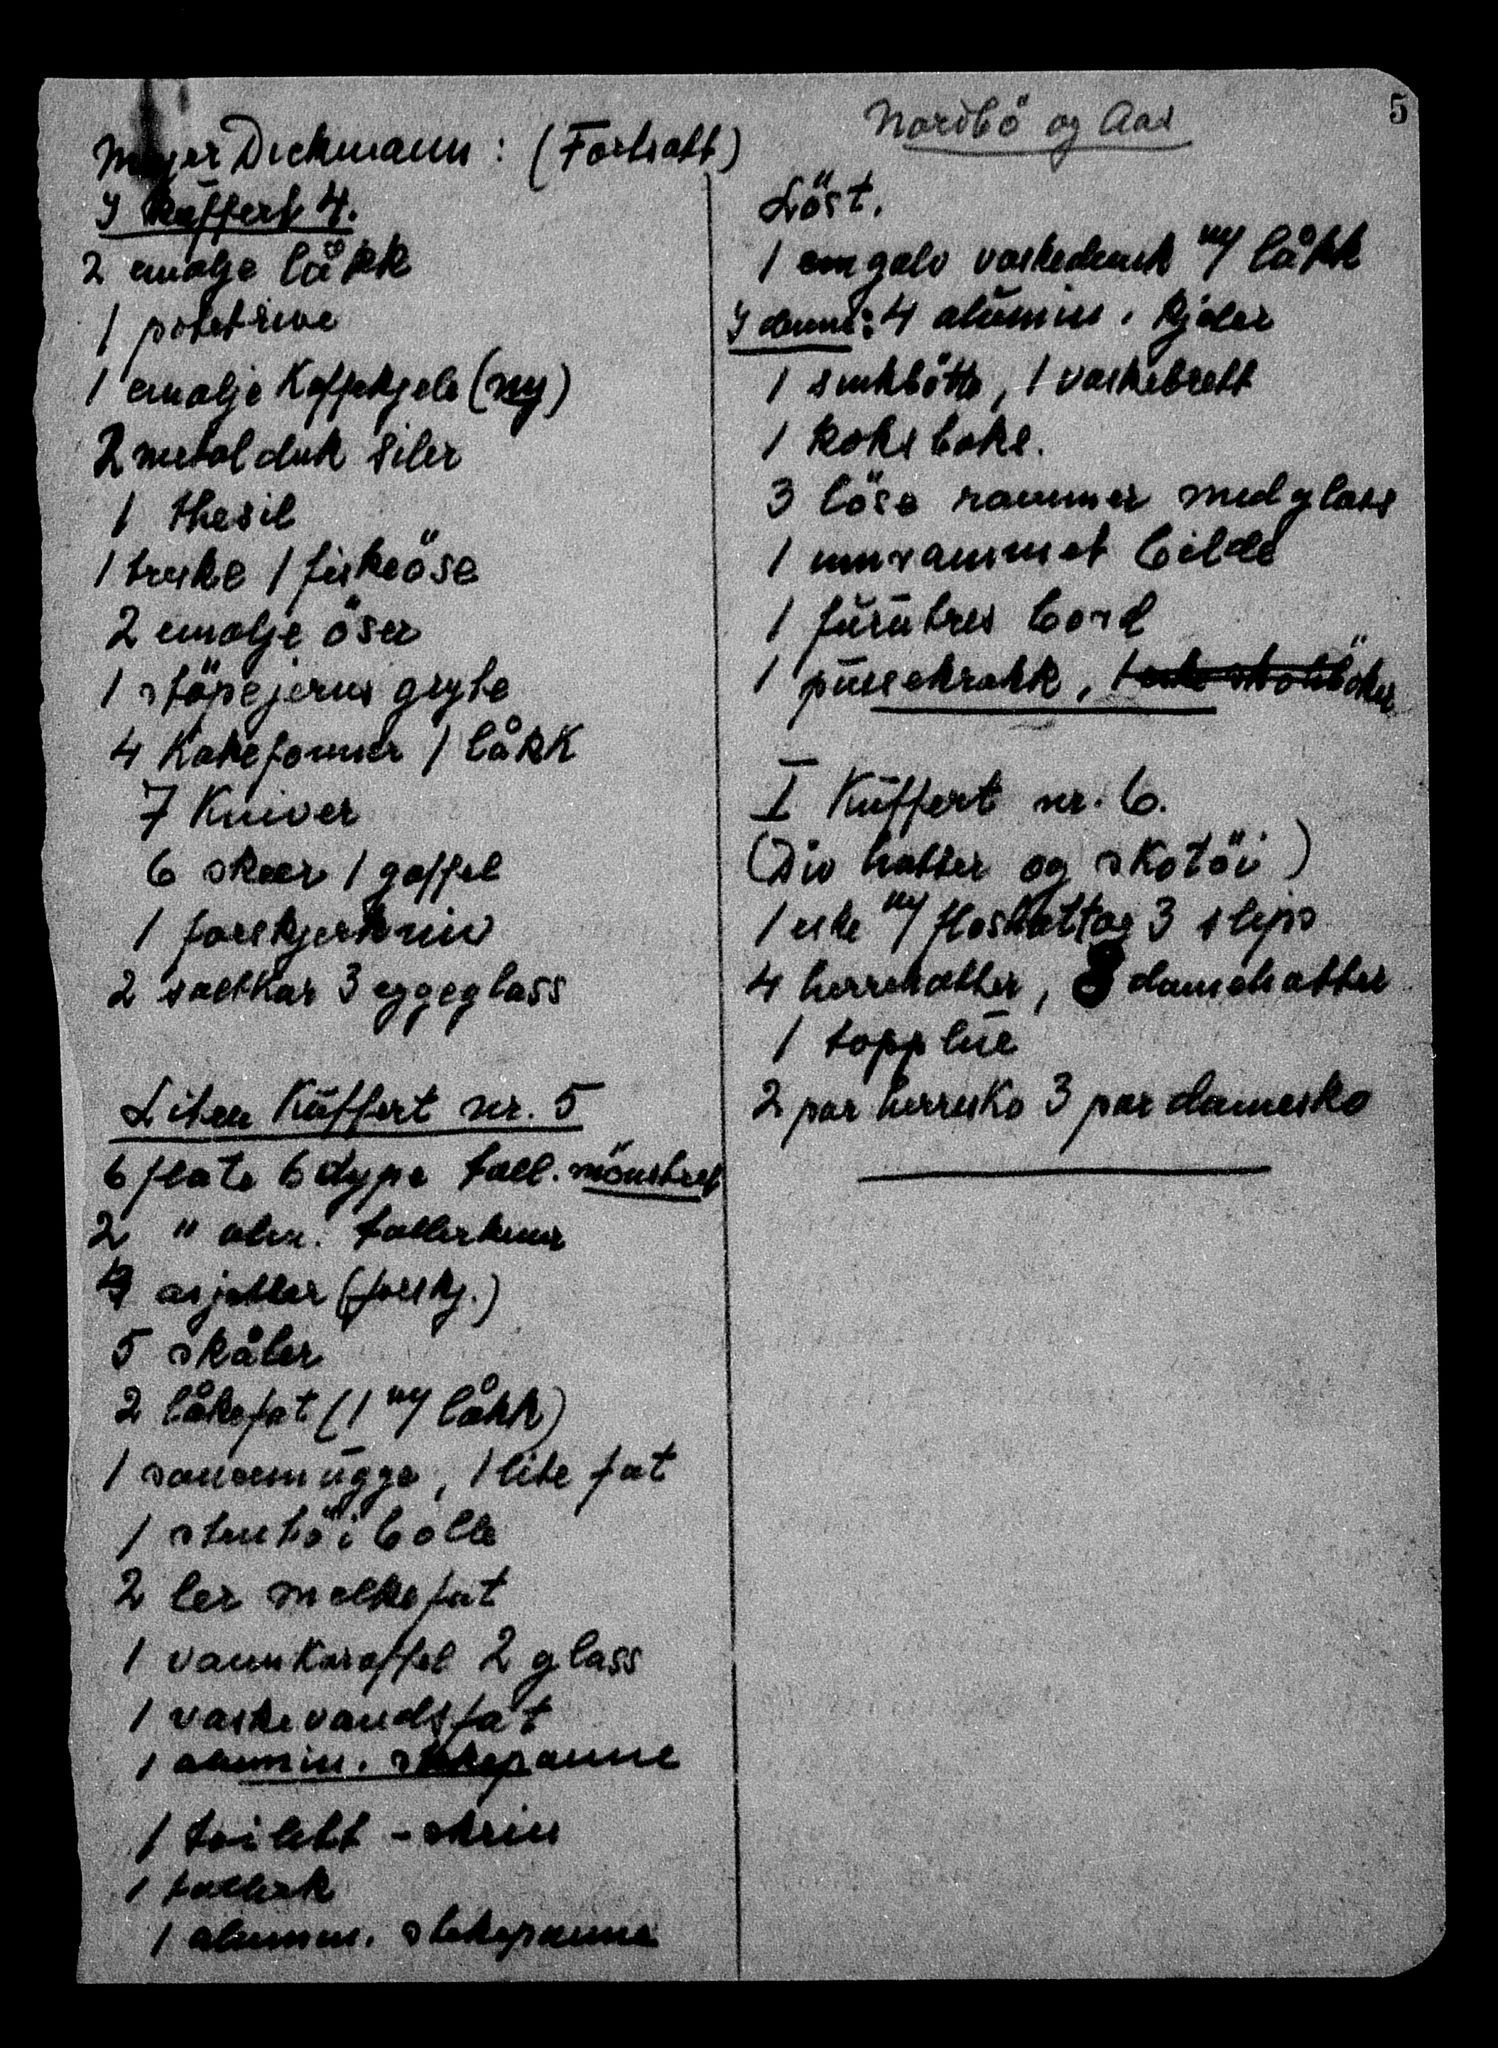 5
Nordbö og Aas
Meyer Dickmann : (Fortsatt)
I Kuffert 4.
2 emalje låkk
1 potetrive
1 emalje Kaffekjele (ny)
2 metalduk siler
1 thesil
1 treske 1 fiskeöse
2 emalje öser
1 stöpejerns gryte
4 Kakeformer 1 låkk
7 Kniver
6 skeer 1 gaffel
1 forskjerkniv
2 saltkar 3 eggeglass
Liten Kuffert nr. 5
6 flate 6 dype tall. mönstret
2 " alm. tallerkener
4 asjetter (forskj.)
5 skåler
2 låkefat (1 m/ låkk)
1 sausemugge, 1 lite fat
1 stentöi bolle
2 ler melkefat
1 vannkaraffel 2 glass
1 vaskevandsfat
1 alumin. stekepanne
1 toilett - skrin
1 tallerk
1 alumin. stekepanne
Löst.
1 galv vaskedunk m/ låkk
I denne: 4 alumin. kjeler
1 sinkbötte, 1 vaskebrett
1 koksboks.
3 löse rammer med glass
1 innrammet bilde
1 furutres bord
1 pussekrakk,
I Kuffert nr. 6.
(Div hatter og skotöi)
1 eske m/ floshatt og 3 slips
4 herrehatter, 8 damehatter
1 topplue
2 par herresko 3 par damesko